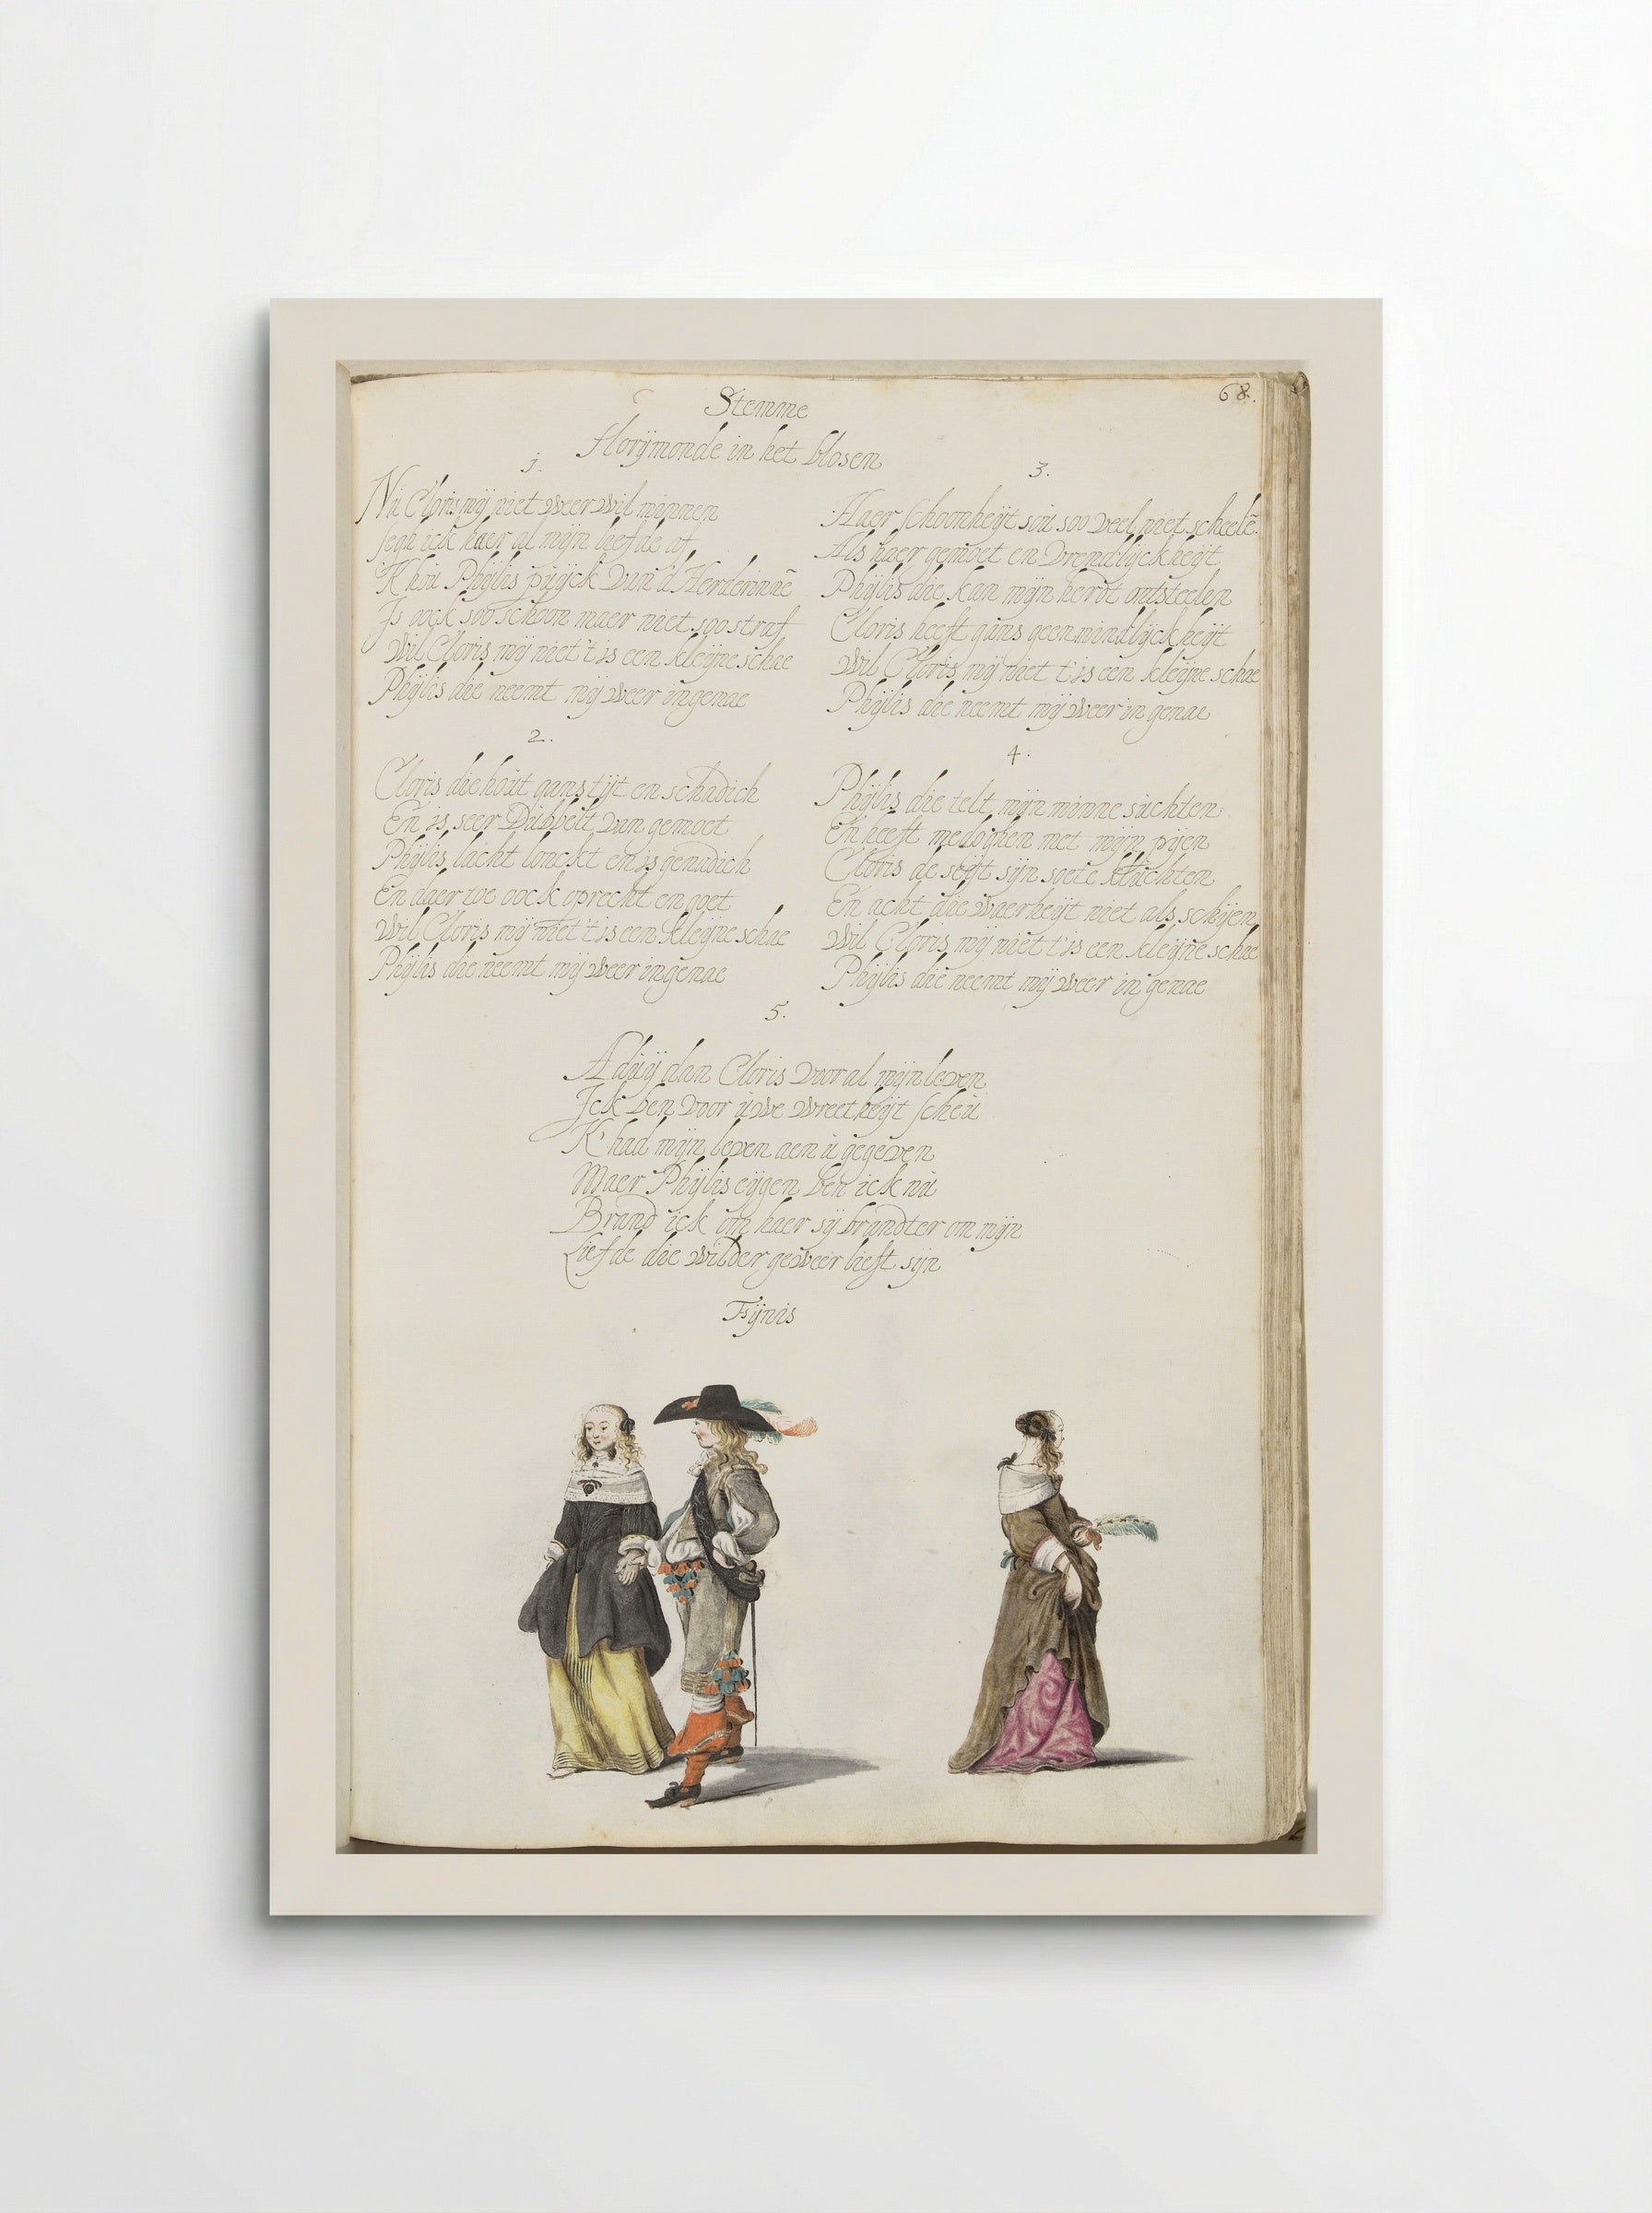 68.
Stemme
Florijmonde in het blosen
1.
Nu Cloris mij niet weer wil minnen
segh ick haer al mijn liefde af
K hou Phijlis puijck van d'Herderinnē
Is oock soo schoon maer niet soo straf
Wil Cloris mij niet t is een kleijne schae
Phijlis die neemt mij weer in genae
2.
Cloris die hout gans tijt en schadich
En is seer Dubbelt van gemoet
Phijlis lacht lonckt en is genadich
En daer toe oock oprecht en goet
Wil Cloris mij niet t is een kleijne schae
Phijlis die neemt mij weer in genae
3.
Haer schoonheijt sou soo veel niet scheelē
Als haer gemoet en vrendlijckheijt
Phijlis die kan mijn herdt ontsteelen
Cloris heeft gans geen mindlijckheijt
Wil Cloris mij niet t'is een kleijne schae
Phijlis die neemt mij weer in genae
4.
Phijlis die telt mijn minne suchten
En heeft medoghen met mijn pijen
Cloris de seijt sijn soete kluchten
En acht die waerheijt niet als schijen
Wil Cloris mij niet t'is een kleijne schae
Phijlis die neemt mij weer in genae
5.
Adijij dan Cloris voor al mijn leven
Ick ben voor uwe wreetheijt scheu
K' had mijn leven aen u gegeven
Maer Phijlis eijgen ben ick nu
Brand ick om haer sij brandter om mijn
Liefde die wilder geweer lieft sijn
Fijnis